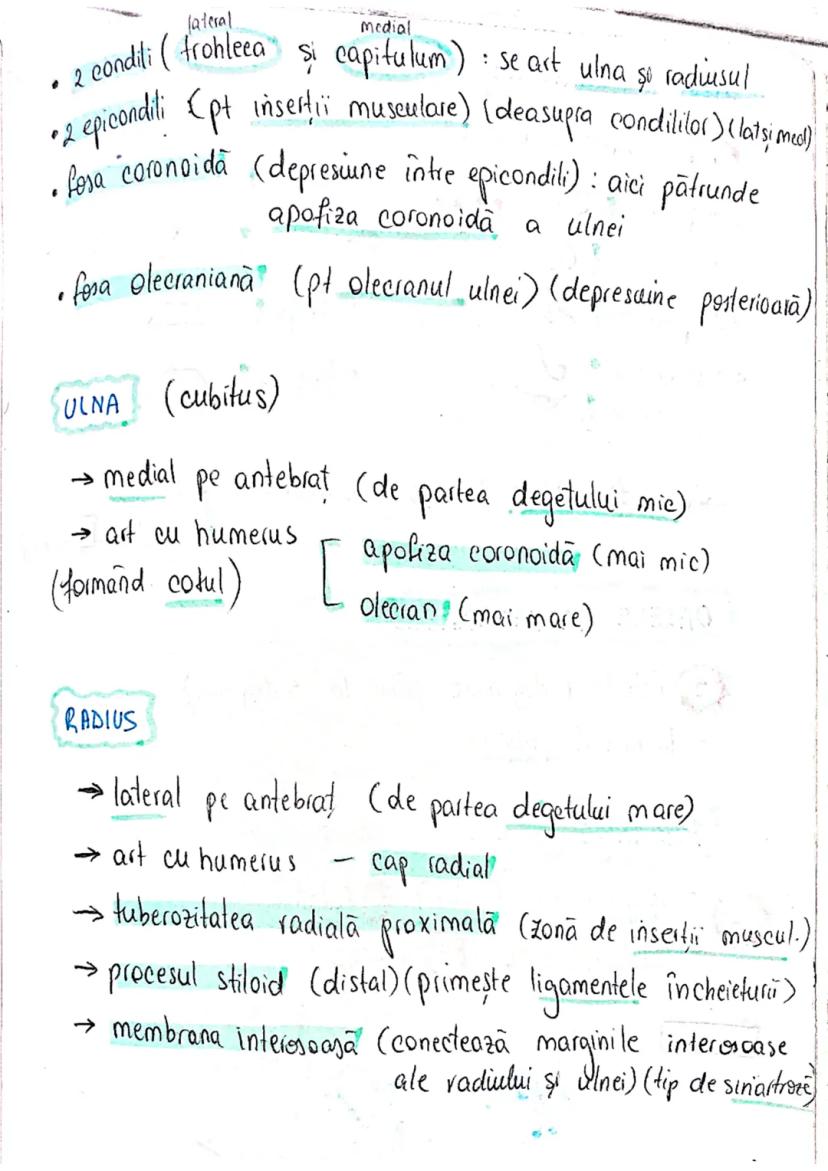 lateral medial
• 2 condili (trohleea și capitulum) : se art ulna și radiusul
• 2 epicondili (pt inserții musculare) (deasupra condililor) (lat și med)
• fosa coronoidă (depresiune între epicondili) : aici pătrunde
apofiza coronoidă a ulnei
• fosa olecraniană (pt olecranul ulnei) (depresuine posterioară)
ULNA (cubitus)
→ medial pe antebraț (de partea degetului mic)
→ art cu humerus
(formând cotul)
apofiza coronoidă (mai mic)
olecran (mai mare)
RADIUS
→ lateral pe antebraț (de partea degetului mare)
→ art cu humerus – cap radial
→ tuberozitatea radială proximală (zonă de inserții muscul.)
→ procesul stiloid (distal) (primește ligamentele încheieturii)
→ membrana interosoasă (conectează marginile interosoase
ale radiului și ulnei) (tip de sinartroză)